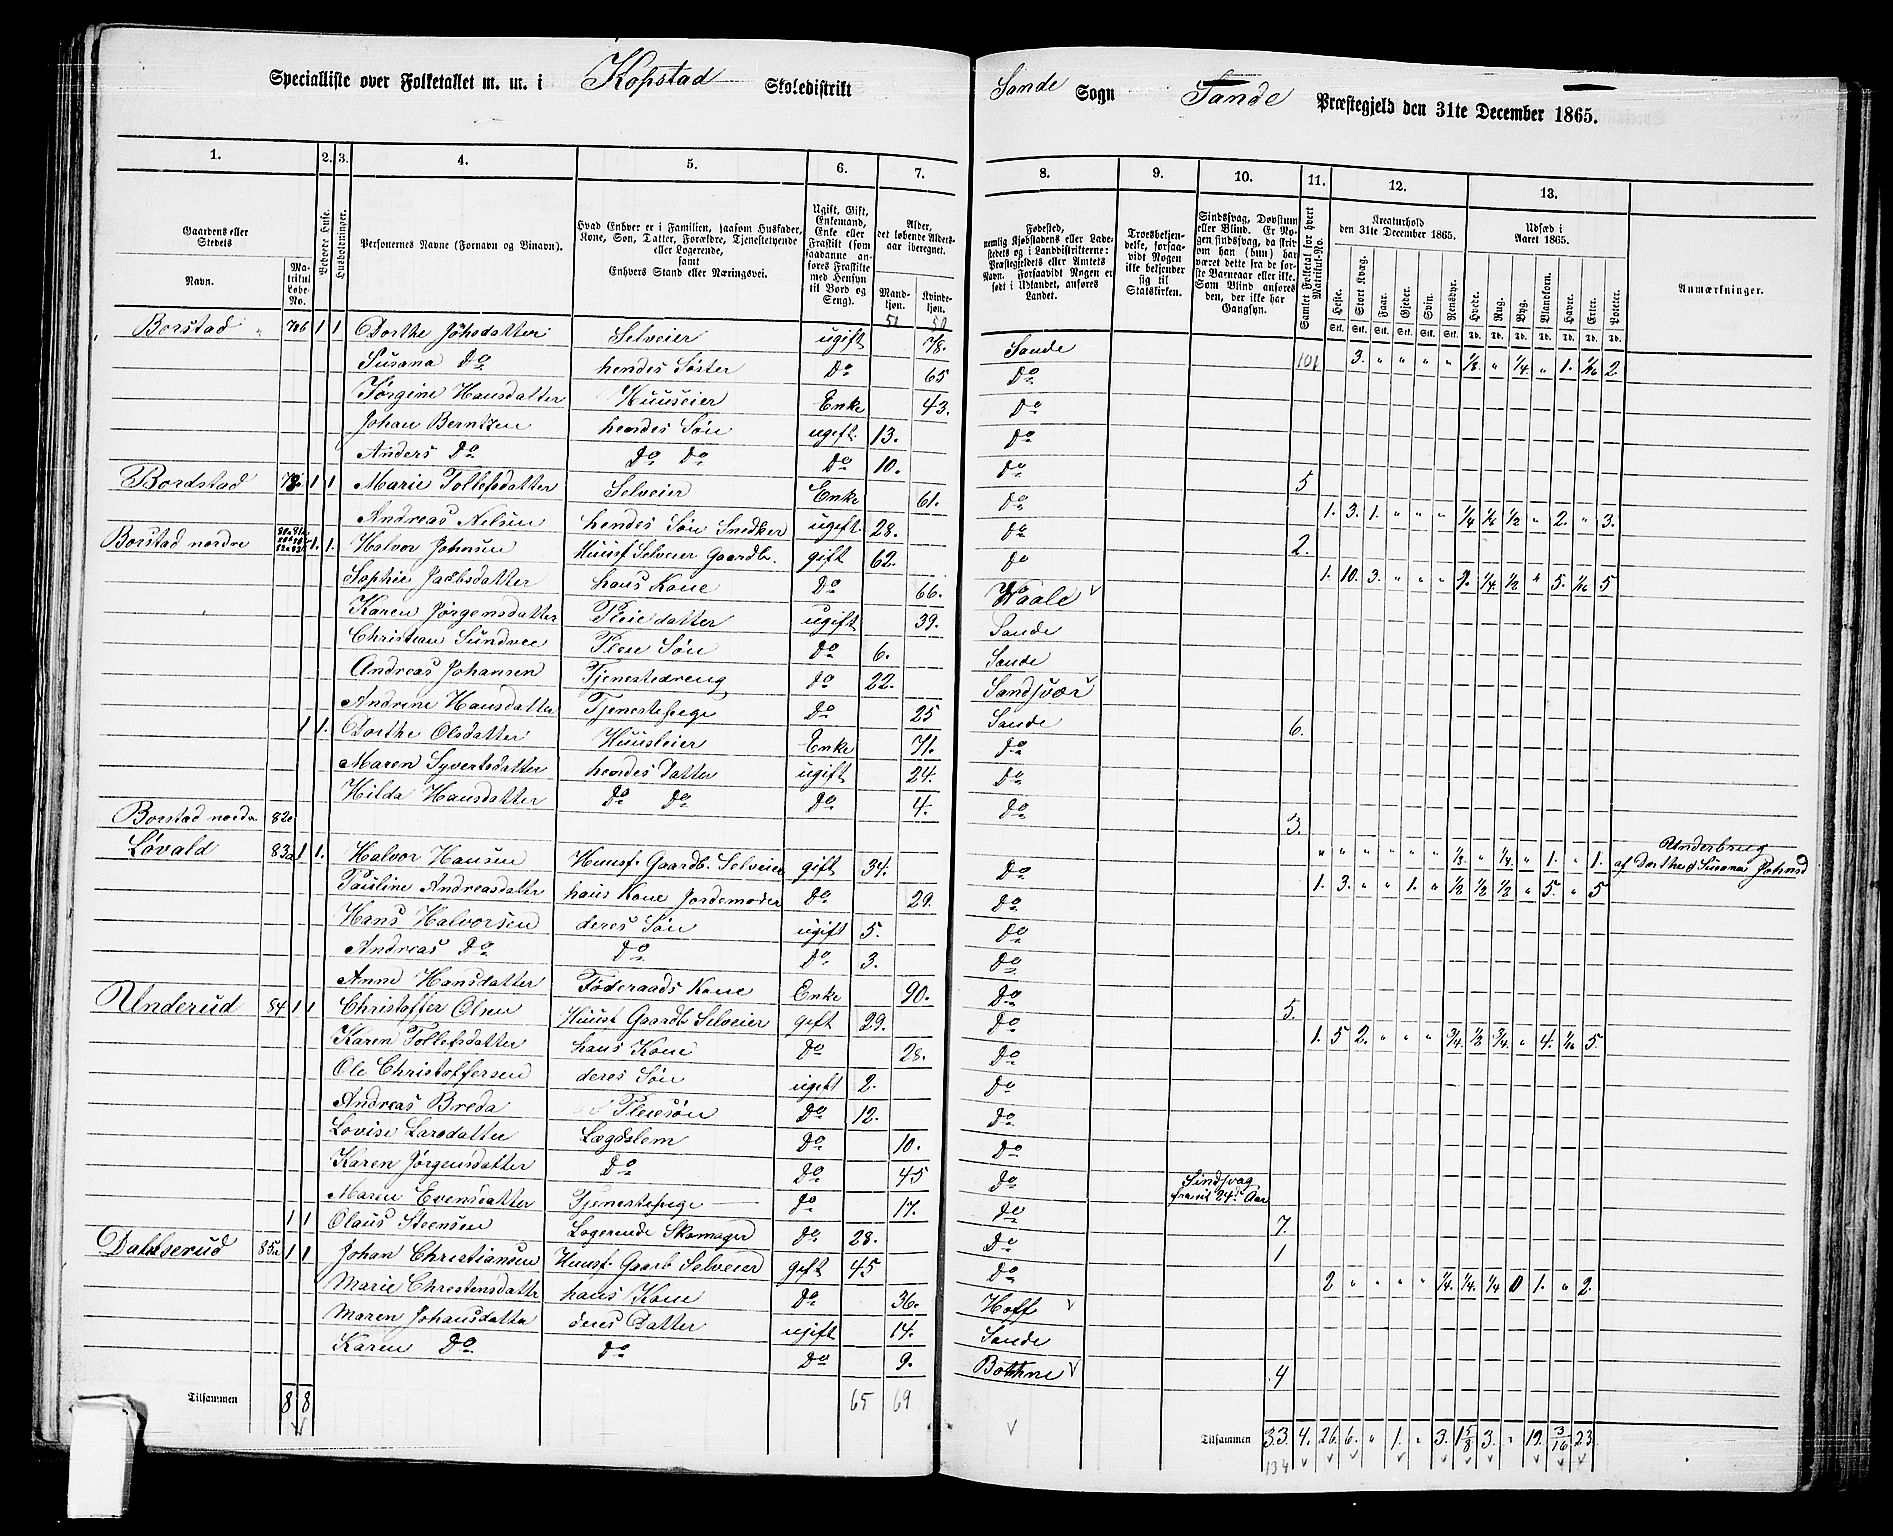 Specialliste over Folketallet m. m. i Kopstad Skoledistrikt Sande Sogn Sande Præstegjeld den 31te December 1865.
1. 2. 3. 4. 5. 6. 7. 8. 9. 10. 11. 12. 13.
Gaardens eller Stedets
Navn. Matrikul Løbe-No.
Beboede Huse.
Husholdninger.
Personernes Navne (Fornavn og Vinavn).
Hvad Enhver er i Familien, saasom Husfader, Kone, Søn, Datter, Forældre, Tjenestetyende eller Logerende, samt Enhvers Stand eller Næringsvei.
Ugift, Gift, Enkemand, Enke eller Fraskilt (som saadanne anføres Fraskilte med Hensyn til Bord og Seng).
Alder, det løbende Aldersaar iberegnet.
Mandkjøn. Kvindekjøn.
Fødested, nemlig Kjøbstadens eller Ladestedets og i Landdistrikterne: Præstegjeldets eller Amtets Navn. Forsaavidt Nogen er født i Udlandet, anføres Landet.
Troesbekjendelse, forsaavidt Nogen ikke bekjender sig til Statskirken.
Sindssvag, Døvstum eller Blind. Er Nogen sindssvag, da skriv om han (hun) har været dette fra de første Barneaar eller ikke. Som Blind anføres den, der ikke har Gangsyn.
Samlet Folketal for hvert Matrikul-No.
Kreaturhold den 31te December 1865.
Heste. Stort Kvæg. Faar. Gjeder. Svin. Rensdyr.
Udsæd i Aaret 1865.
Hvede. Rug. Byg. Blandkorn. Havre. Erter. Poteter.
Anmærkninger.
51 50
Borstad 1 1 Dorthe Johsdatter Selveier ugift 78. Sande 101 3. " " " " ⅛. " ¼. " 1. 1/16 2.
Susana Do hendes Søster Do 65 Do
Jørgine Hansdatter Huuseier Enke 43. Do
Johan Berntzen hendes Søn ugift 13. Do
Anders Do Do Do Do 10. Do 5
Bordstad 1 1 Marie Tollefsdatter Selveier Enke 61. Do 1. 3. 1. " " " ¼ ½ " 2. " 3.
Andreas Nelsen hendes Søn Snedker ugift 28. Do 2.
Borstad nordre 1. 1. Halvor Johnsen Huusf Selveier Gaardb. gift 62. Do 1. 10. 3. " " " ¼ ½ " 5. 1/16 5
Sophie Jacbsdatter hans Kone Do 66. Waale
Karen Jørgensdatter Pleiedatter ugift 39. Sande
Christian Sundvee Pleie Søn Do 6. Sande
Andreas Johansen Tjenestedreng Do 22. Sandsvær
Andrine Hansdatter Tjenestepige Do 25 Sande 6.
1 1. Dorthe Olsdatter Huusleier Enke 71. Do
Maren Syvertsdatter hendes Datter ugift 24. Do
Hilda Hansdatter Do Do Do 4. Do 3.
Borstad nordre " " " " " " ⅛ " ¼. " 1. " 1. Underbrug af Dorthe & Susana Johnsd
Løvald 83a 1 1. Halvor Hansen Huusf. Gaardb. Selveier gift 34. Do 1. 3. " " 1. " ½ ½ ½ " 5. " 5
Pauline Andreasdatter hans Kone Jordemoder Do 29. Do
Hans Halvorsen deres Søn ugift 5. Do
Andreas Do Do Do 3. Do
Anne Hansdatter Føderaads Kone Enke 90. Do 5.
Underud 84 1 1 Christoffer Olsen Huusf Gaardb Selveier gift 29. Do 1. 5 2. " " " ¾. ½ ¾. " 4. 1/16 5.
Karen Tollefsdatter hans Kone Do 28. Do
Ole Christoffersen deres Søn ugift 2. Do
Andreas Breda Pleiesøn Do 12. Do
Lovise Larsdatter Lægdslem Do 10. Do
Karen Jørgensdatter Do Do 45 Do Sindsvag fra sit 24de Aar
Maren Evensdatter Tjenestepige Do 17. Do 7.
1 1 Olaus Steensen Logerende Skomager Do 28. Do 1
Dalelserud 85a 1 1 Johan Christiansen Huusf. Gaarb Selveier gift 45 Do 2 " " " " ¼. ¼. ¼ 0 1. " 2.
Marie Chrestensdatter hans Kone Do 36. Hoff
Maren Johansdatter deres Datter ugift 14. Sande
Karen Do Do Do 9. Bothne 4
Tilsammen 8 8 65 69 Tilsammen 33. 4. 26. 6. " 1. " 3. 1⅝ 3. " 19. 3/16 23.
134